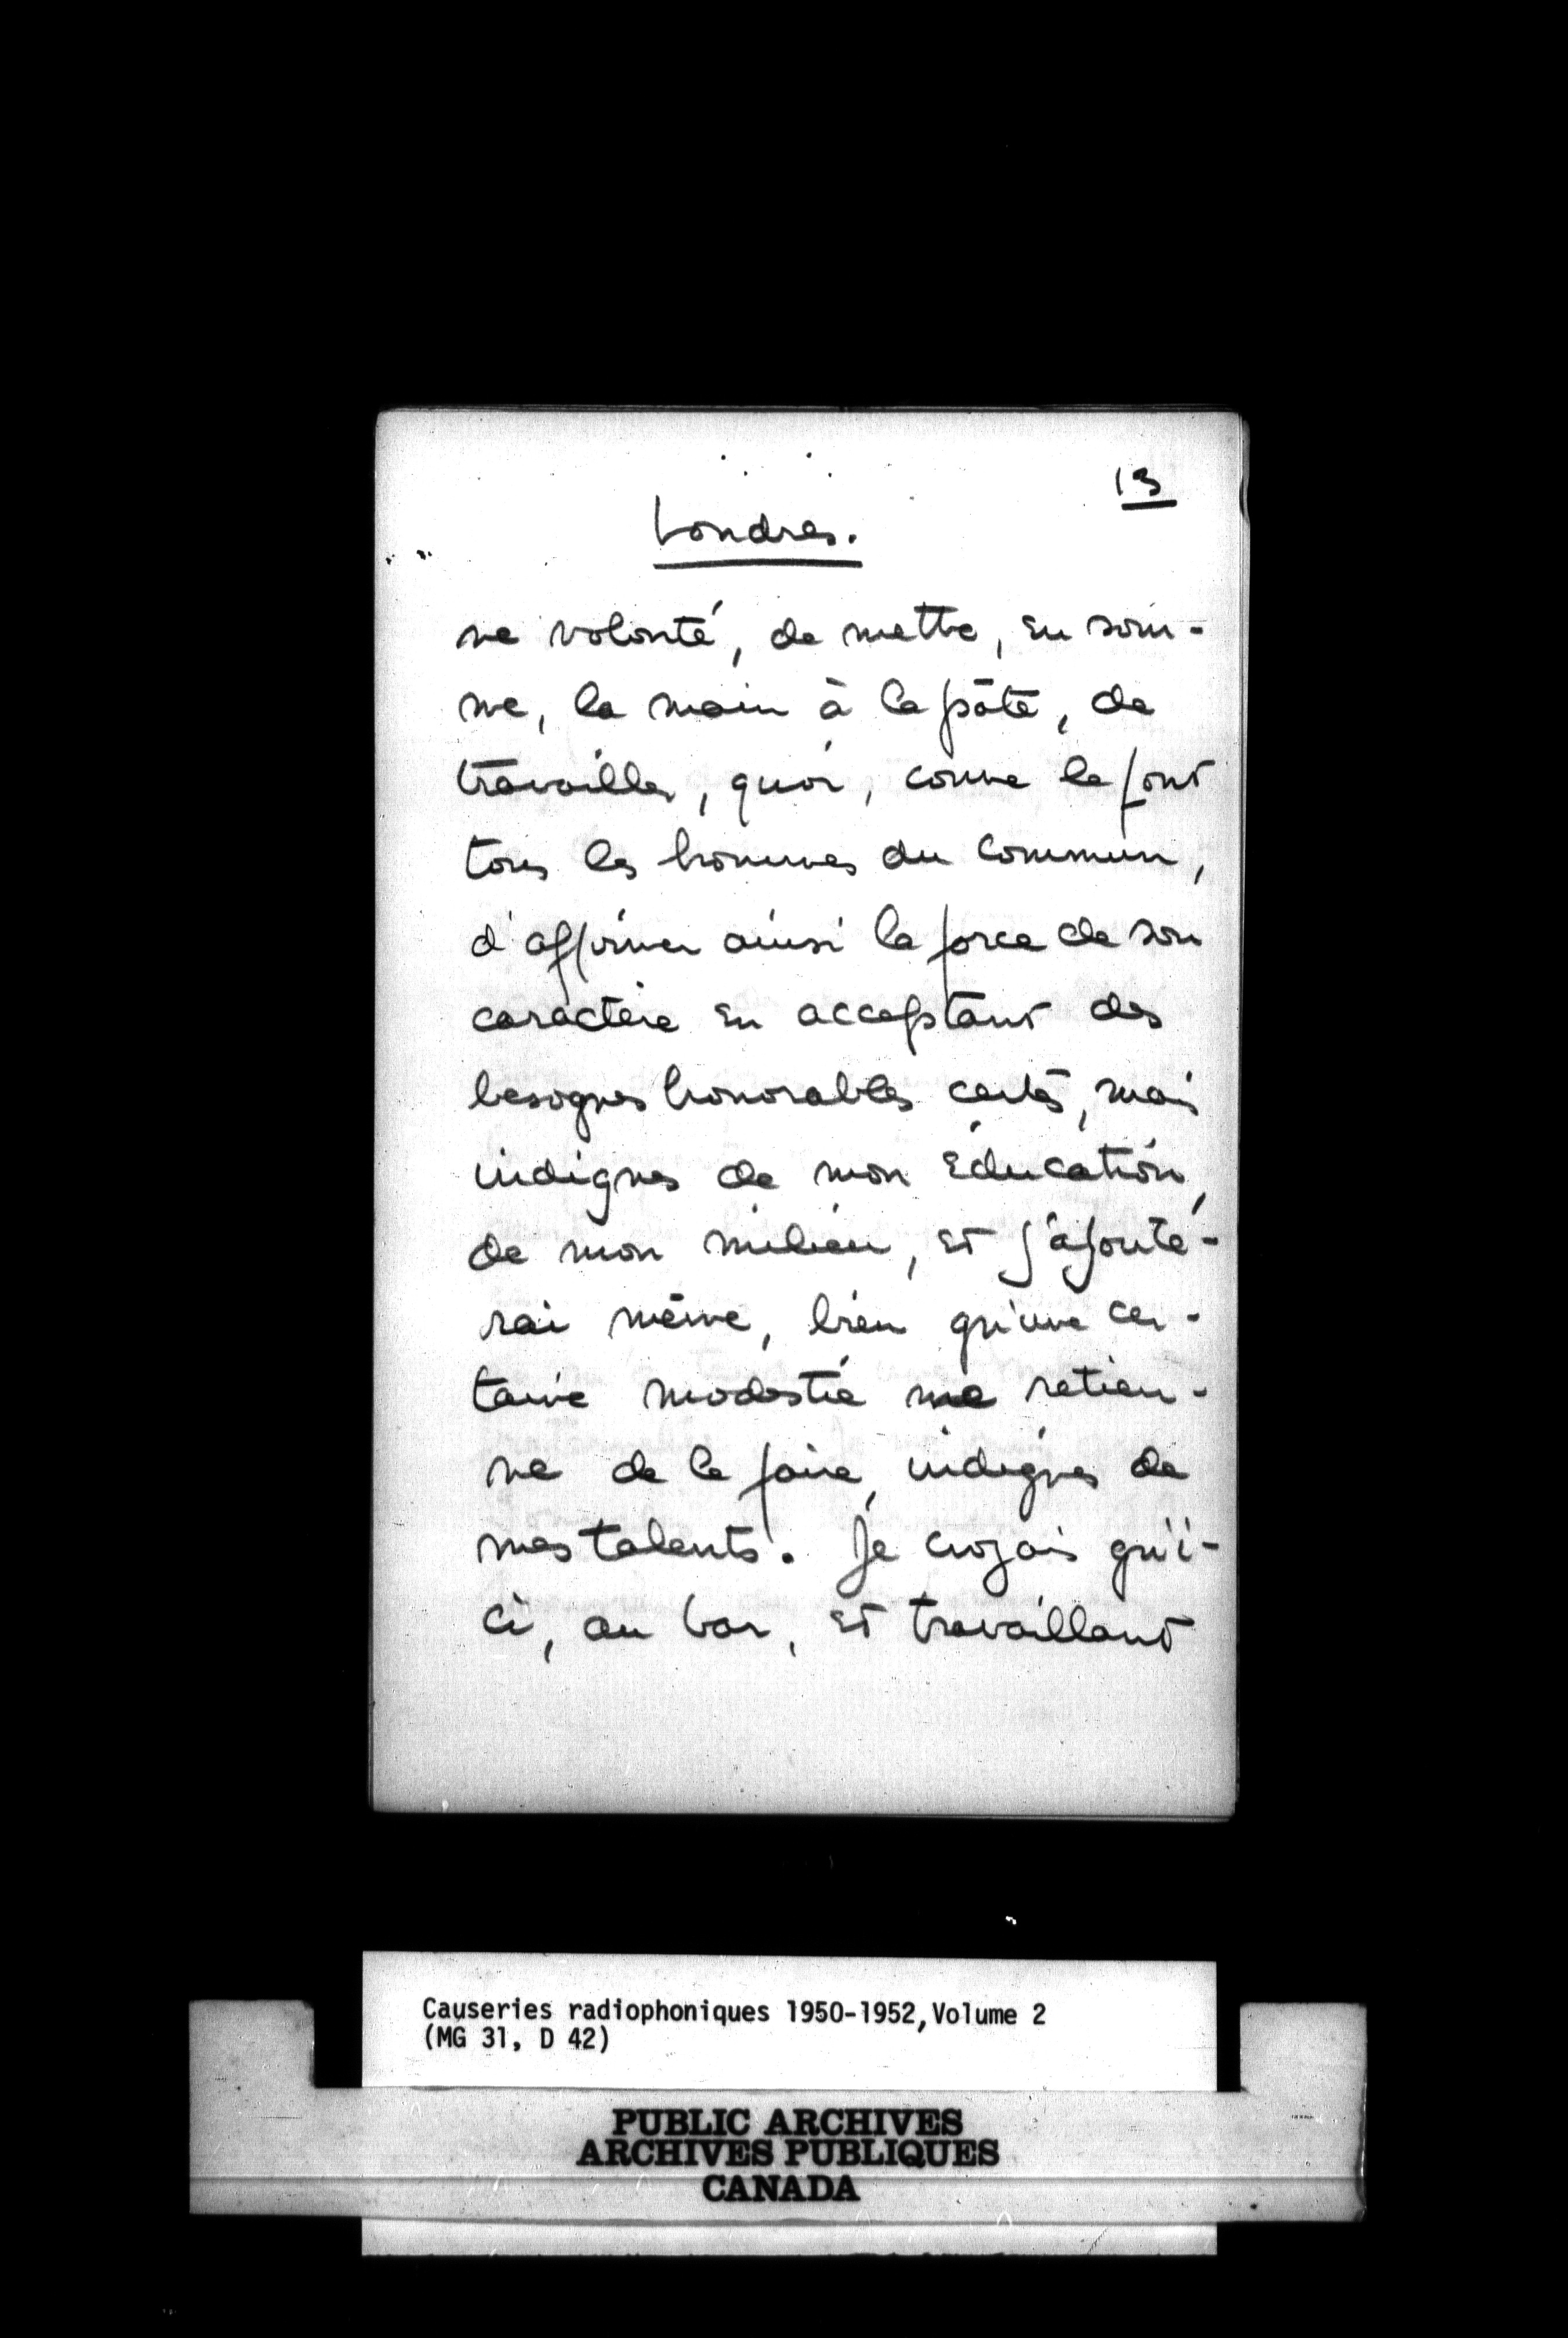 13
Londres.
ne volonté, de mettre, en som-
me, la main à la pâte, de
travailler, quoi, comme le font
tous les hommes du commun,
d'affirmer ainsi la force de son
caractère en acceptant des
besognes honorables certes, mais
indignes de mon éducation,
de mon milieu, et j'ajoute-
rai même, bien qu'une cer-
taine modestie me retien-
ne de le faire, indignes de
mes talents. Je croyais qu'i-
ci, au bar, et travaillant
Causeries radiophoniques 1950-1952, Volume 2
(MG 31, D 42)
PUBLIC ARCHIVES
ARCHIVES PUBLIQUES
CANADA